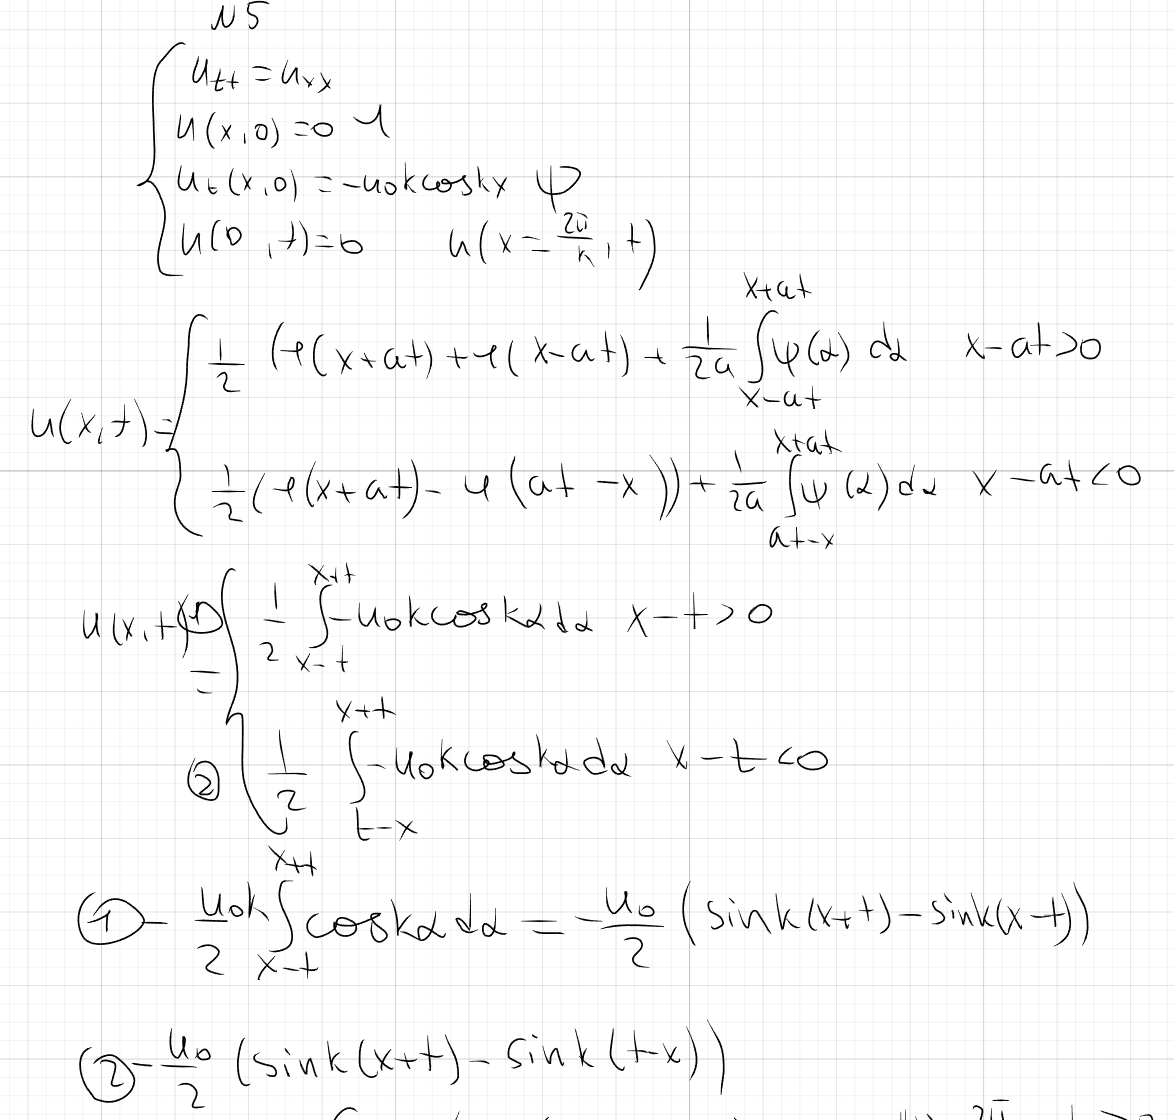 N5
u_tt = u_xx
u(x,0)=0 φ
u_t(x,0) = -u₀k cos kx ψ
u(0,t)=0 u(x = 2π/k, t)
u(x,t) = { 1/2 (φ(x+at) + φ(x-at) + 1/2a ∫_{x-at}^{x+at} ψ(α) dα x-at>0
1/2 (φ(x+at) - φ(at-x)) + 1/2a ∫_{at-x}^{x+at} ψ(α) dα x-at<0
u(x,t) = { ① 1/2 ∫_{x-t}^{x+t} -u₀k cos kα dα x-t>0
② 1/2 ∫_{t-x}^{x+t} -u₀k cos kα dα x-t<0
① - u₀k/2 ∫_{x-t}^{x+t} cos kα dα = - u₀/2 (sin k(x+t) - sin k(x-t))
② - u₀/2 (sin k(x+t) - sin k(t-x))